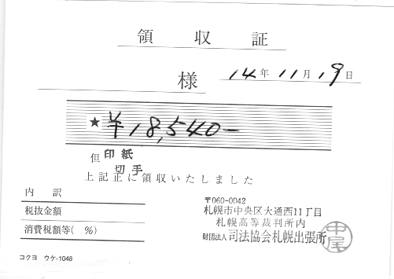 領収証
様 14年11月19日
★ ¥18,540-
但 印紙
切手
上記正に領収いたしました
内訳
税抜金額
消費税額等( %)
〒060-0042
札幌市中央区大通西11丁目
札幌高等裁判所内
財団法人 司法協会札幌出張所
中尾
コクヨ ウケ-1048